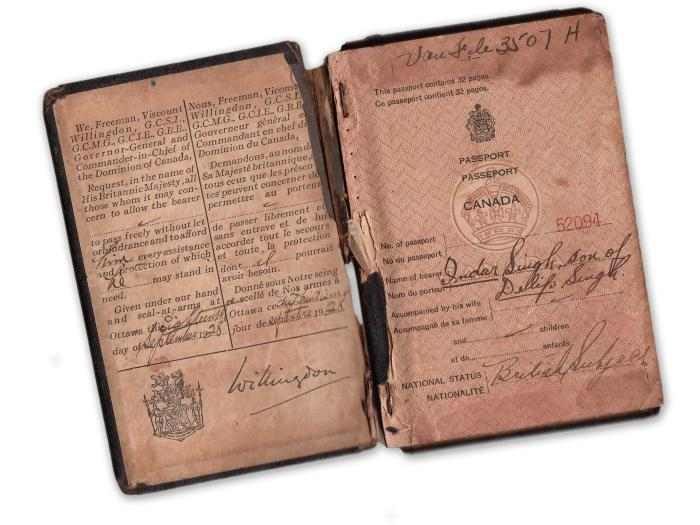 We, Freeman, Viscount
Willingdon, G.C.S.I.,
G.C.M.G., G.C.I.E., G.B.E.,
Governor-General and
Commander-in-Chief of
the Dominion of Canada,
Request, in the name of
His Britannic Majesty, all
those whom it may con-
cern to allow the bearer
to pass freely without let
or hindrance and to afford
him every assistance
and protection of which
he may stand in
need.
Given under our hand
and seal-at-arms at
Ottawa this eighteenth
day of September 1928
Nous, Freeman, Vicom
Willingdon, G.C.S.I.
G.C.M.G., G.C.I.E., G.B.E.
Gouverneur général e
Commandant en chef de
Dominion du Canada,
Demandons, au nom de
Sa Majesté britannique,
tous ceux que les présen
tes peuvent concerner de
permettre au porteur
de passer librement
sans entrave et de lui
accorder tout le secours
et toute la protection
dont il pourrait
avoir besoin.
Donné sous Notre seing
et scellé de Nos armes à
Ottawa ce
jour de September 1928
Willingdon
3507 H
This passport contains 32 pages.
Ce passeport contient 32 pages.
PASSPORT
PASSEPORT
CANADA
52094
No. of passport
No du passeport
Name of bearer Indar Singh, son of
Nom du porteur Dalip Singh
Accompanied by his wife
Accompagné de sa femme
and children
et de enfants
NATIONAL STATUS British Subject
NATIONALITÉ